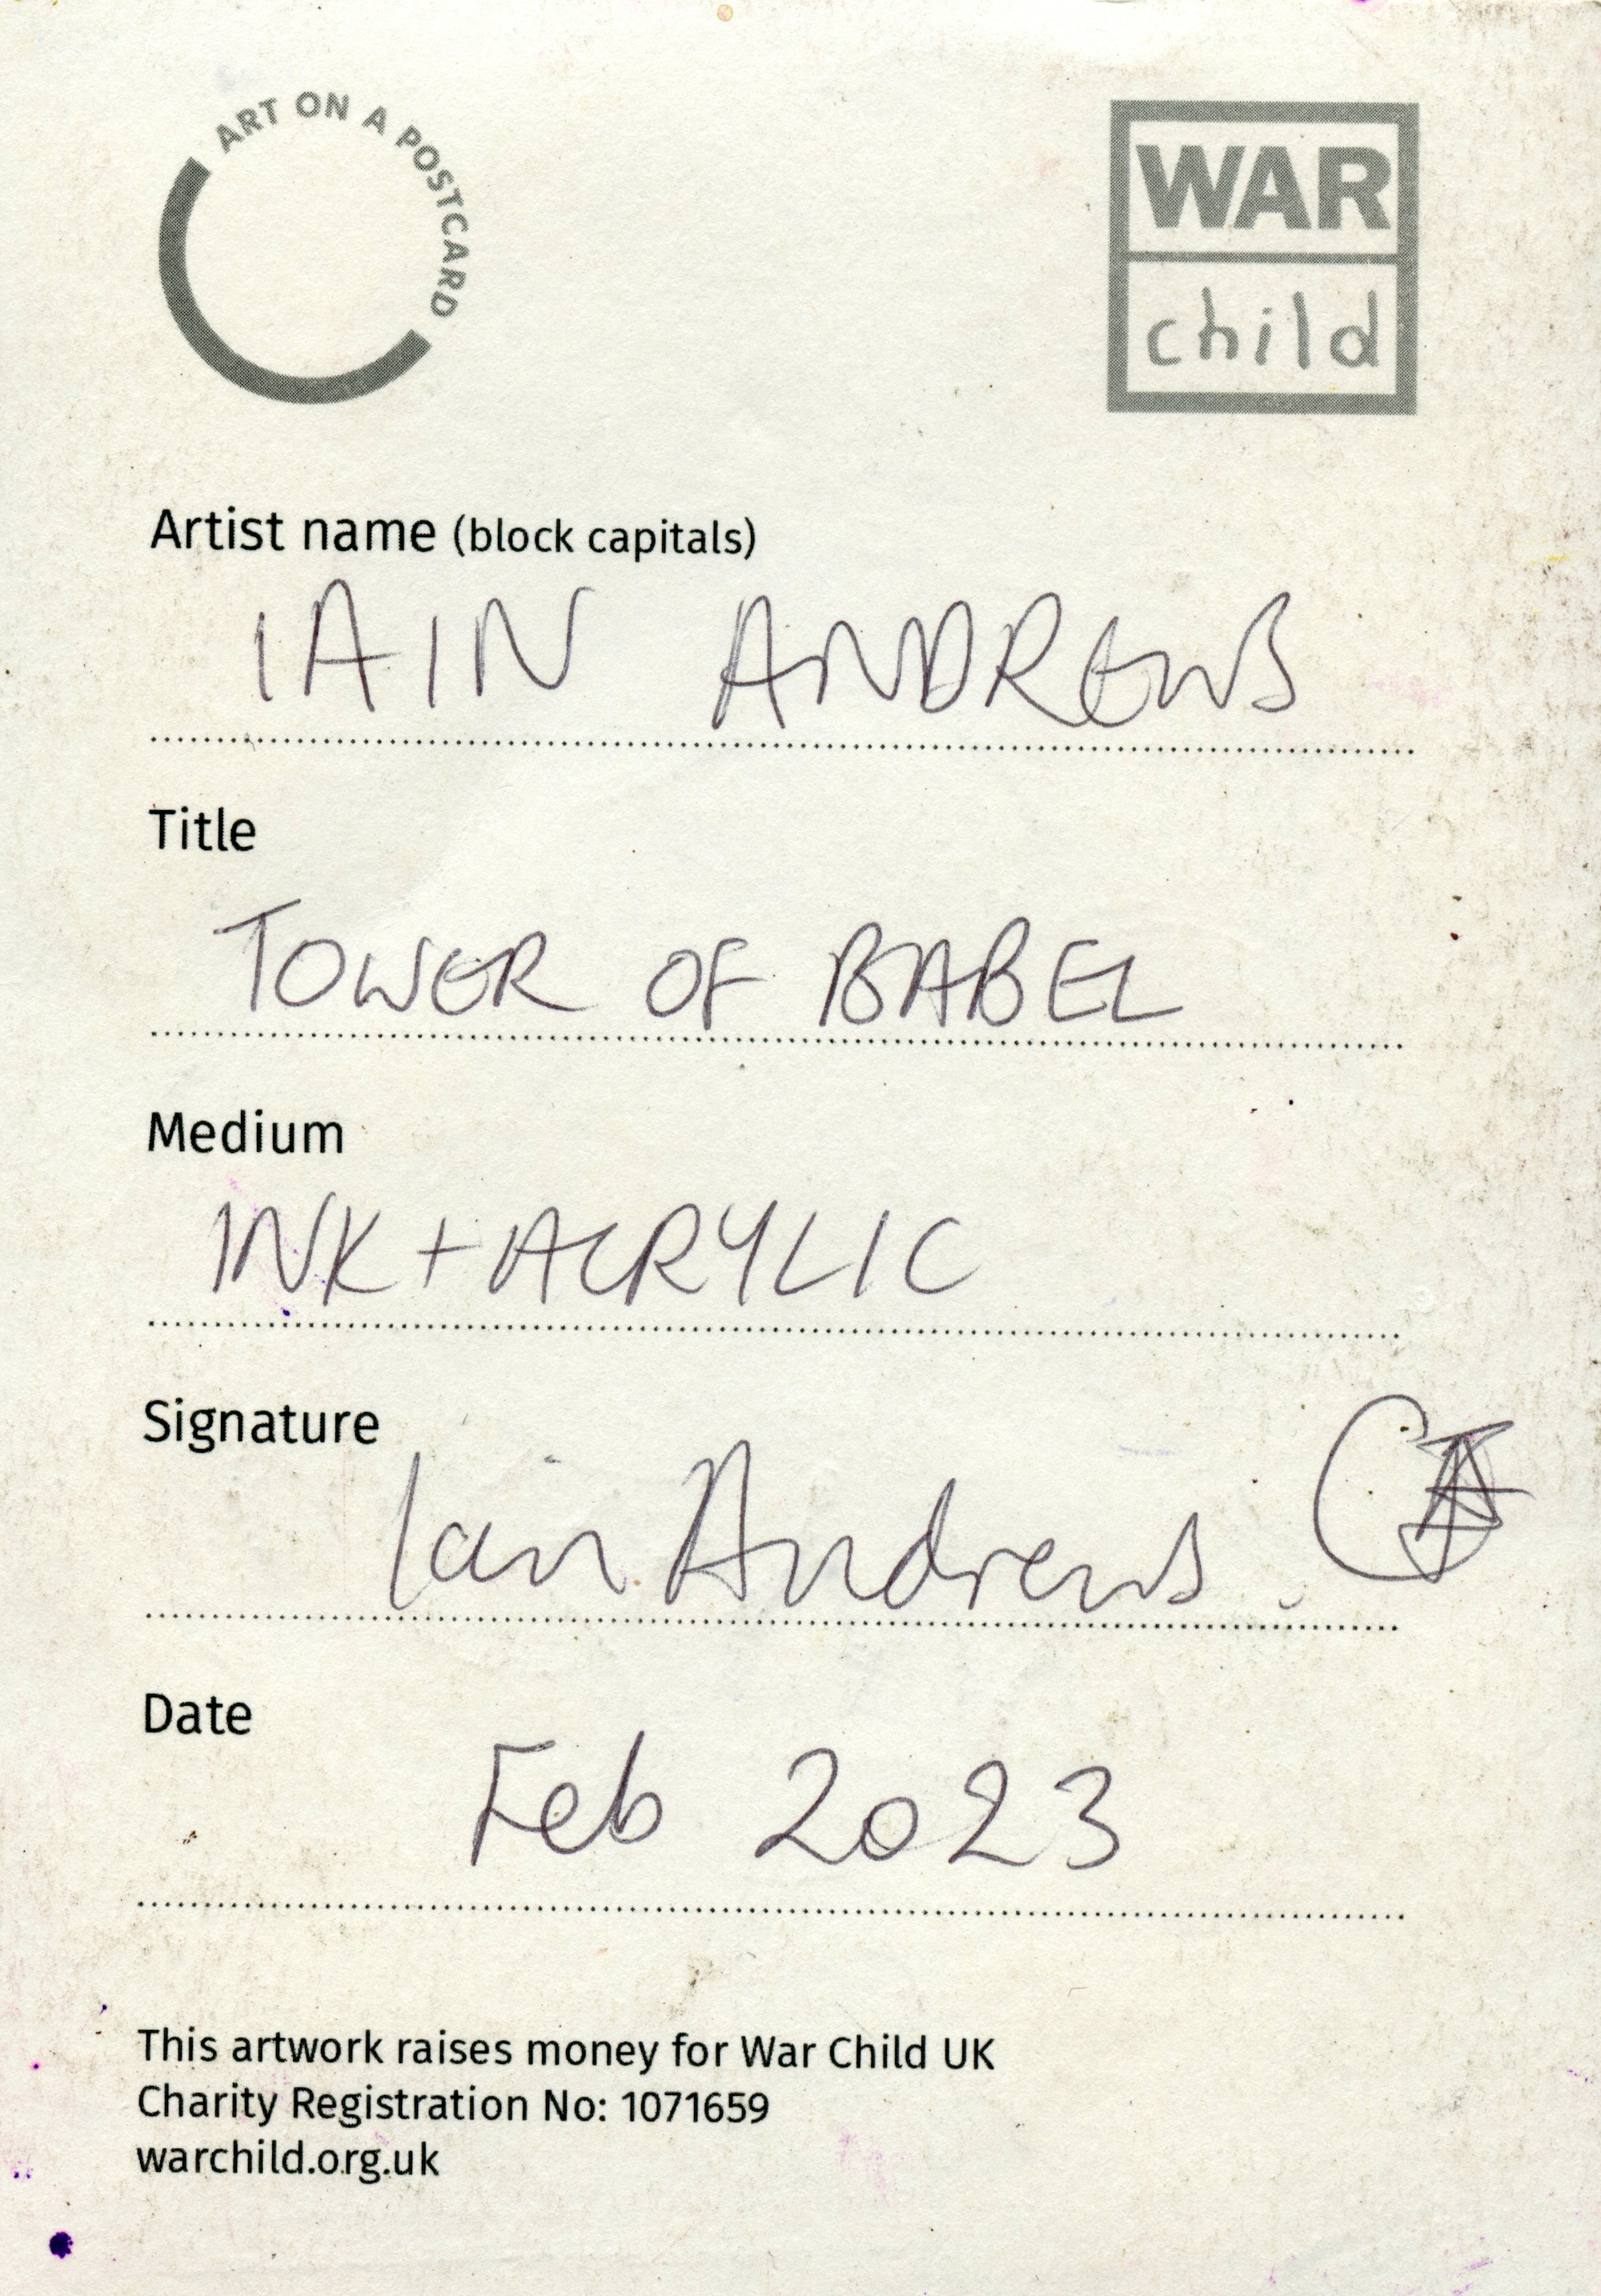 ART ON A POSTCARD
WAR
child
Artist name (block capitals)
IAIN ANDREWS
Title
TOWER OF BABEL
Medium
INK + ACRYLIC
Signature
Iain Andrews
Date
Feb 2023
This artwork raises money for War Child UK
Charity Registration No: 1071659
warchild.org.uk